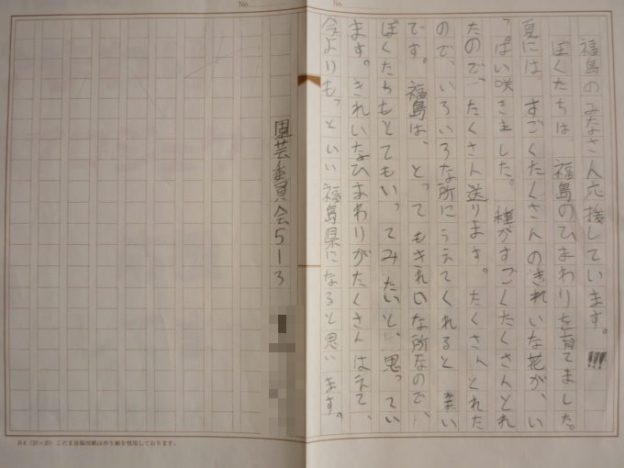 福島のみなさん応援しています。!!!
ぼくたちは、福島のひまわりを育てました。
夏には、すごくたくさんのきれいな花が、い
っぱい咲きました。種がすごくたくさんとれ
たので、たくさん送ります。たくさんとれた
ので、いろいろな所にうえてくれると幸い
です。福島は、とってもきれいな所なので、
ぼくたちもとてもいってみたいと、思ってい
ます。きれいなひまわりがたくさんはえて、
今よりもっといい福島県になると思います。
園芸委員会5-3
No.
No.